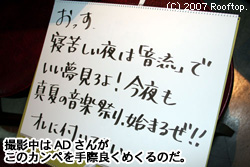 (C) 2007 Rooftop.
おっす
寝苦しい夜は「音流」で
いい夢見よ!今夜も
真夏の音楽祭り、始まるぜ!!
オレに付い
撮影中は AD さんが
このカンペを手際良くめくるのだ。